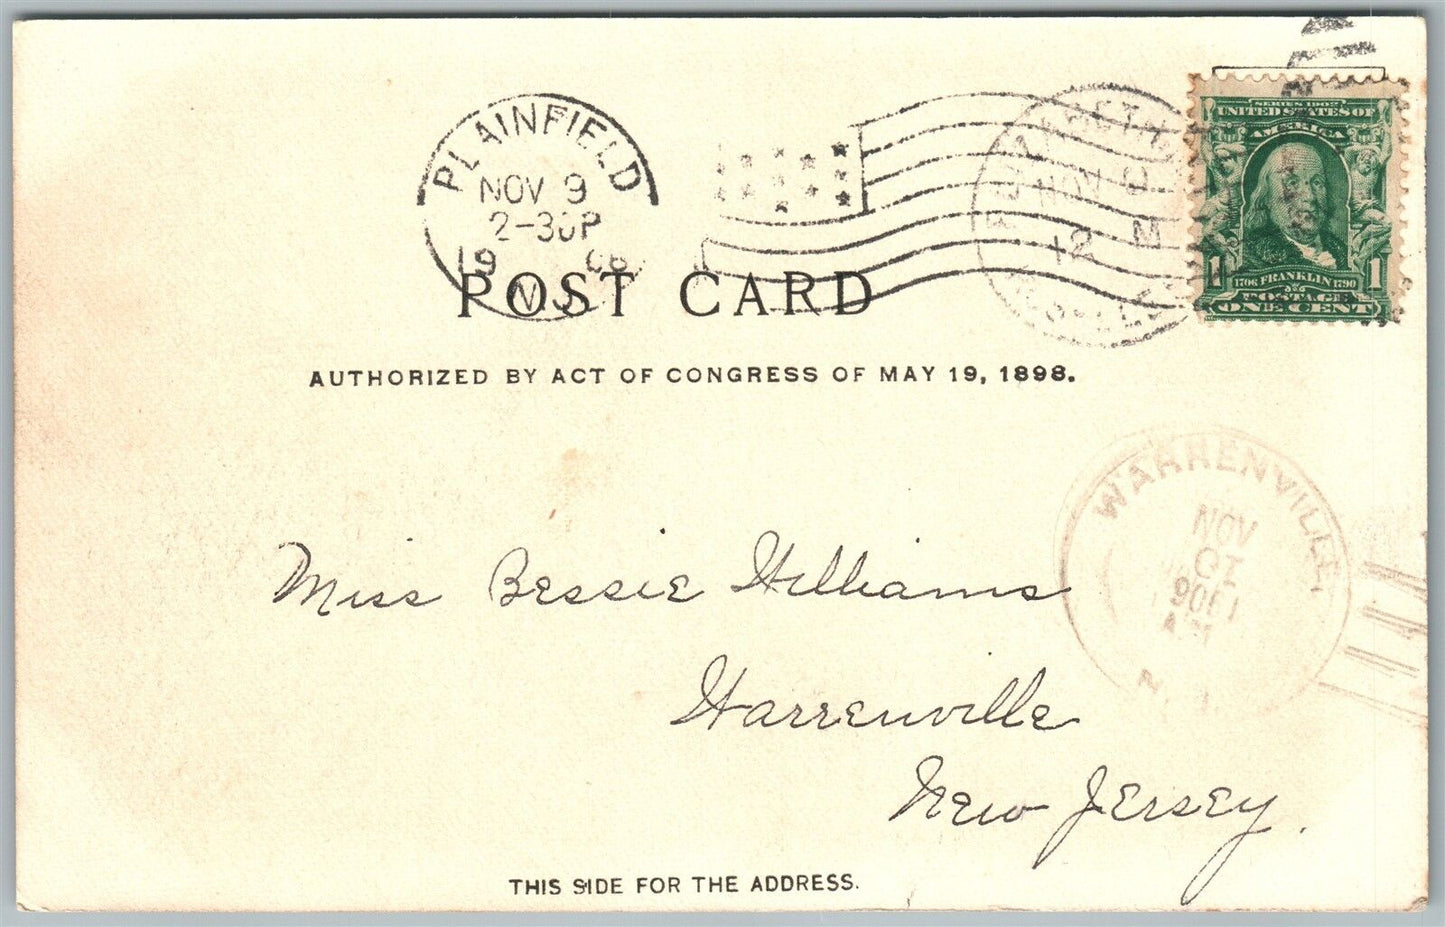 PLAINFIELD
NOV 9
2-30P
19 06
N.J.
NOV 9
12 M
SERIES 1902
UNITED STATES OF
AMERICA
1 FRANKLIN 1
1706 1790
POSTAGE
ONE CENT
POST CARD
AUTHORIZED BY ACT OF CONGRESS OF MAY 19, 1898.
WARRENVILLE
NOV
AM
N.J.
Miss Bessie Williams
Warrenville
New Jersey.
THIS SIDE FOR THE ADDRESS.